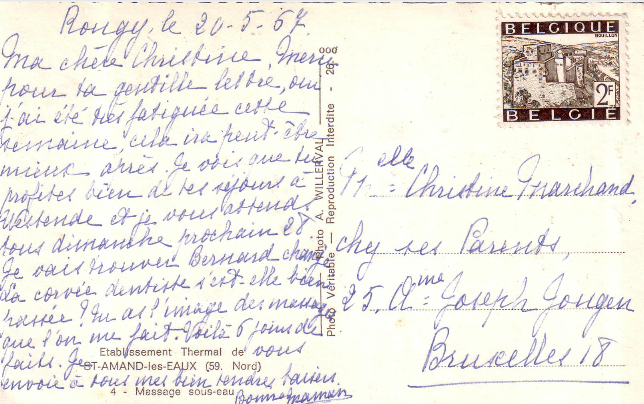 Rongy, le 20-5-67.
Ma chère Christine, Merci
pour ta gentille lettre, oui
j'ai été très fatiguée cette
semaine, cela ira peut-être
mieux après. Je vois que tu
profites bien de tes séjours à
Westende et je vous attends
tous dimanche prochain 28.
Je vais trouver Bernard changé
La corvée dentiste s'est-elle bien
passée? Tu as l'image des massages
que l'on me fait. Voilà 6 jours de
faits. Je vous
envoie à tous mes bien tendres baisers.
Bonne maman
Etablissement Thermal de
ST-AMAND-les-EAUX (59. Nord)
4 - Massage sous-eau
Photo A. WILLERVAL
Photo Véritable — Reproduction Interdite - 26
BELGIQUE
BOUILLON
2F
BELGIE
Melle = Christine Marchand,
chez ses Parents,
25, Ame = Joseph Jongen
Bruxelles 18